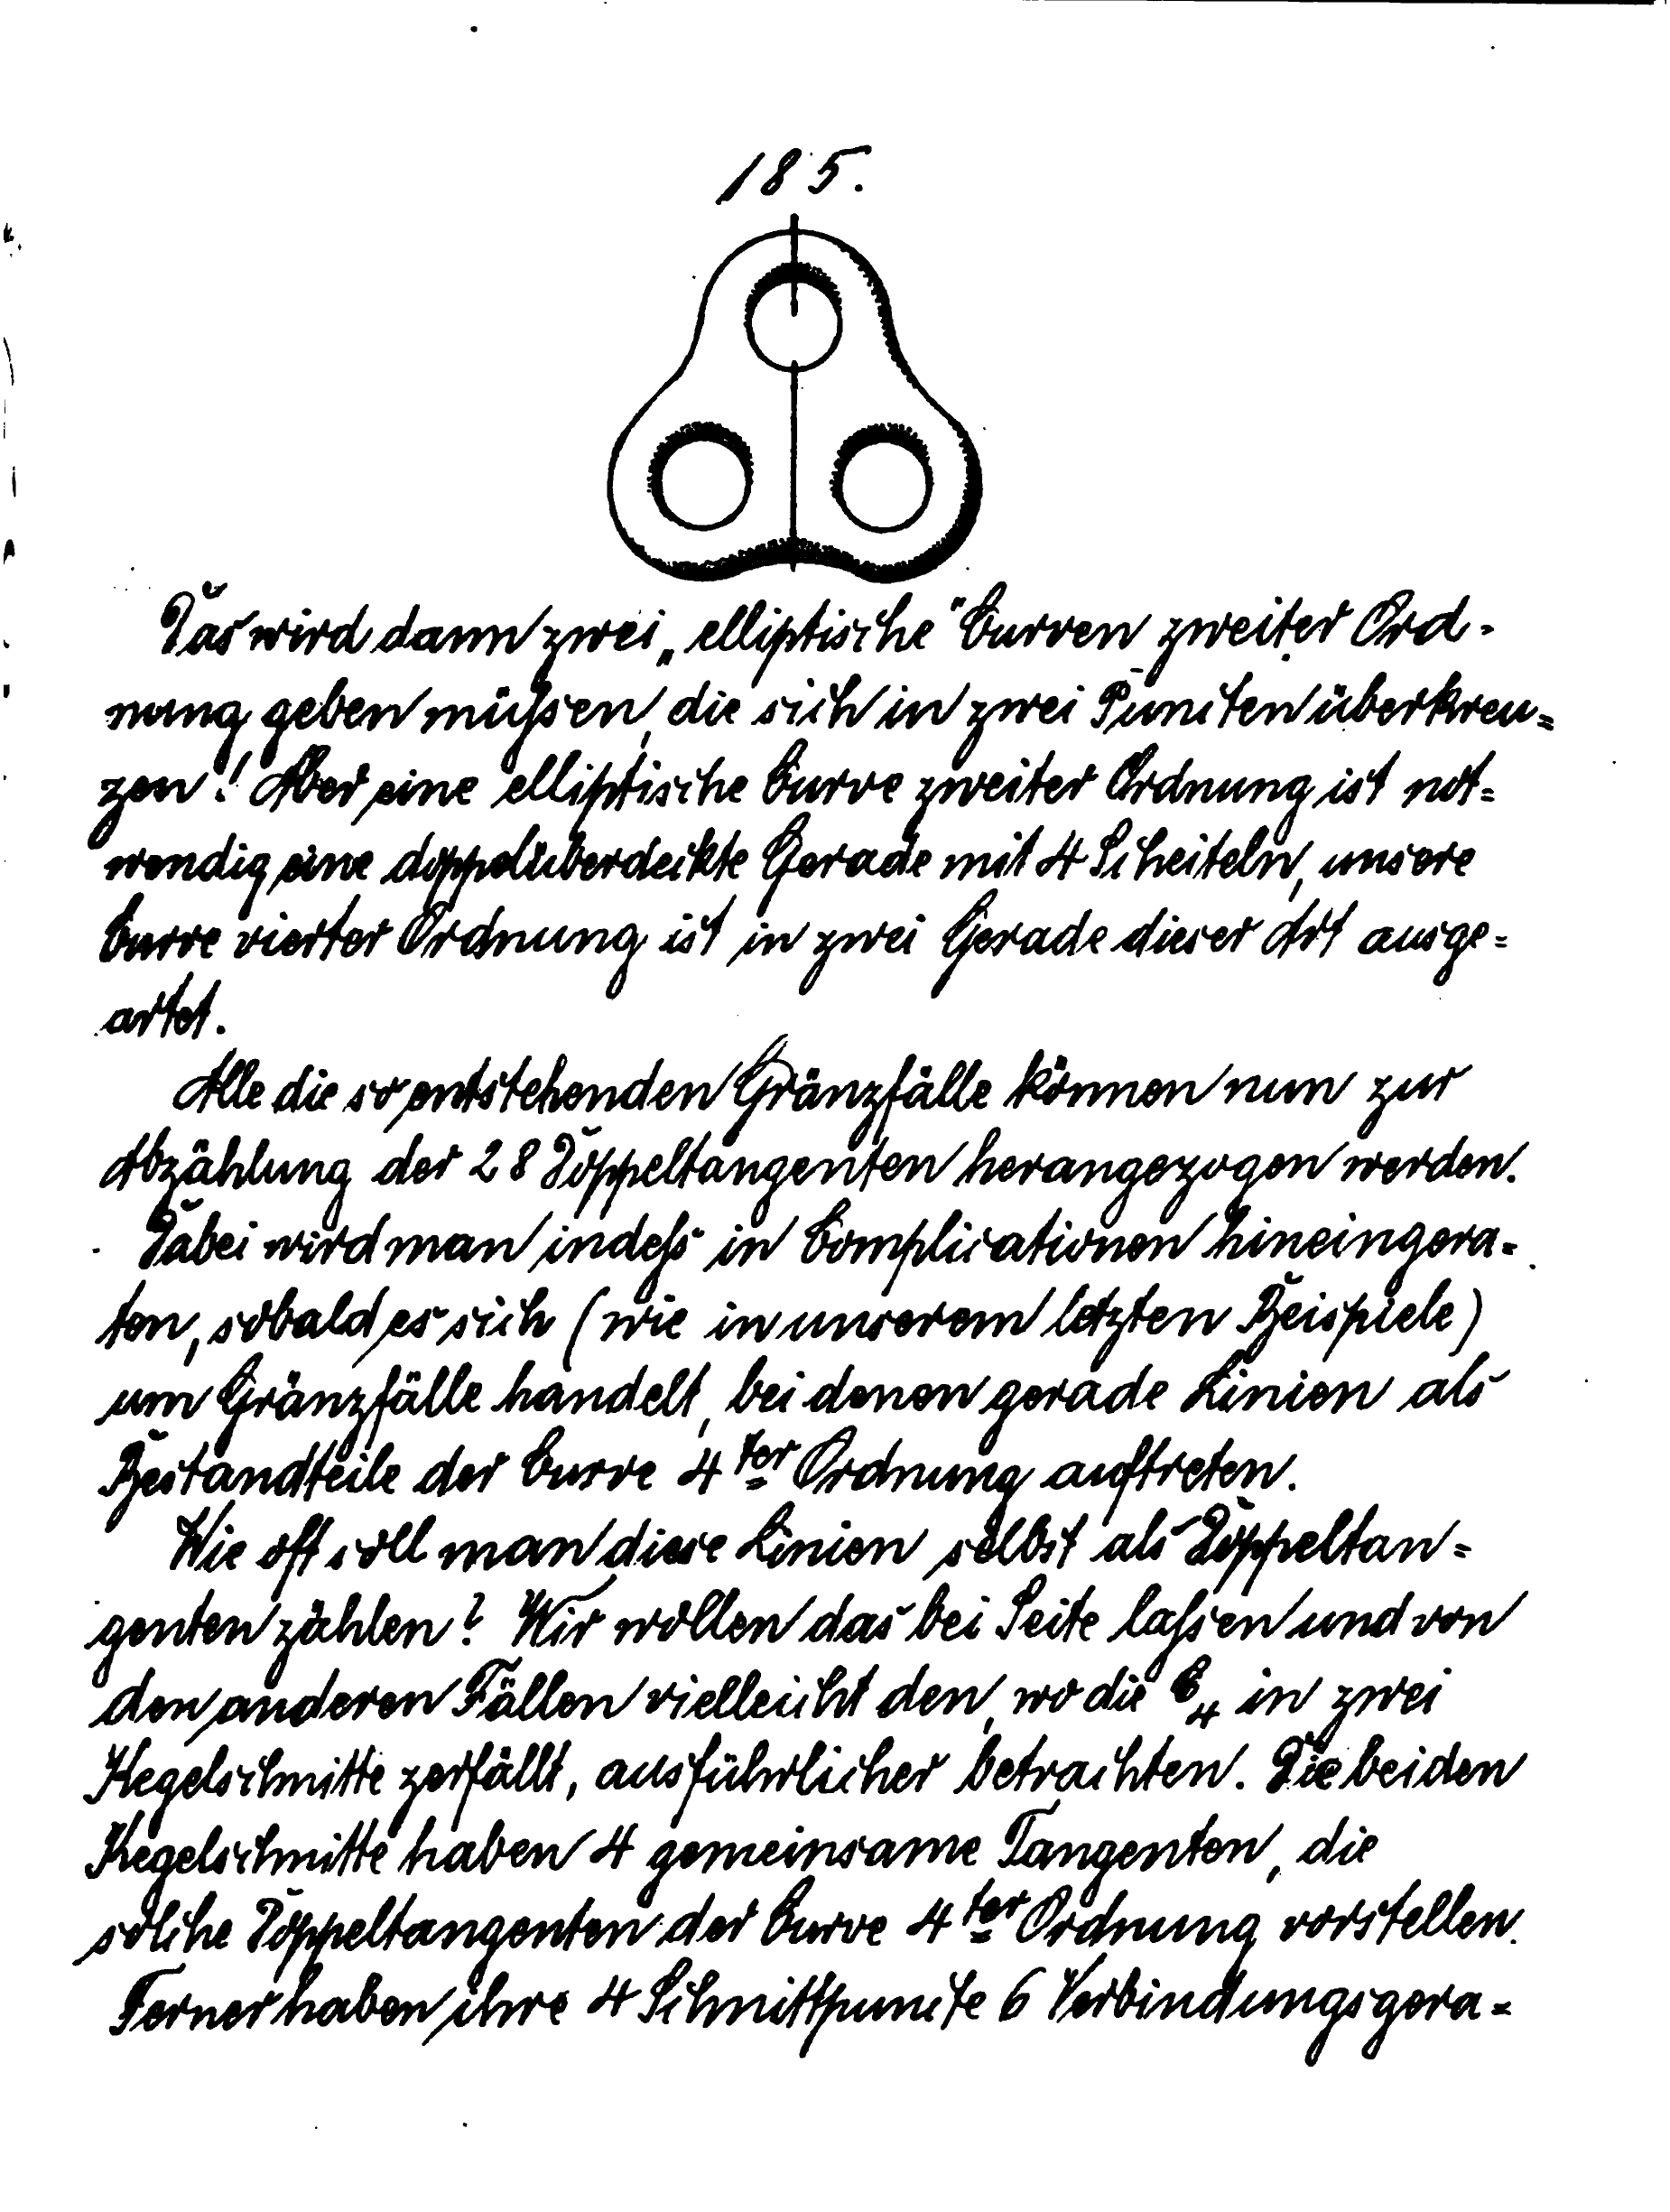 185.
Das wird dann zwei „elliptische" Curven zweiter Ord-
nung geben müssen, die sich in zwei Puncten überkreu-
zen! Aber eine elliptische Curve zweiter Ordnung ist not-
wendig eine doppelüberdeckte Gerade mit 4 Scheiteln, unsere
Curve vierter Ordnung ist in zwei Gerade dieser Art ausge-
artet.
Alle die so entstehenden Gränzfälle können nun zur
Abzählung der 28 Doppeltangenten herangezogen werden.
Dabei wird man indess in Complicationen hineingera-
ten, sobald es sich (wie in unserem letzten Beispiele)
um Gränzfälle handelt, bei denen gerade Linien als
Bestandteile der Curve 4ter Ordnung auftreten.
Wie oft soll man diese Linien selbst als Doppeltan-
genten zählen? Wir wollen das bei Seite lassen und von
den anderen Fällen vielleicht den, wo die C4 in zwei
Kegelschnitte zerfällt, ausführlicher betrachten. Die beiden
Kegelschnitte haben 4 gemeinsame Tangenten, die
solche Doppeltangenten der Curve 4ter Ordnung vorstellen.
Ferner haben ihre 4 Schnittpuncte 6 Verbindungsgera-